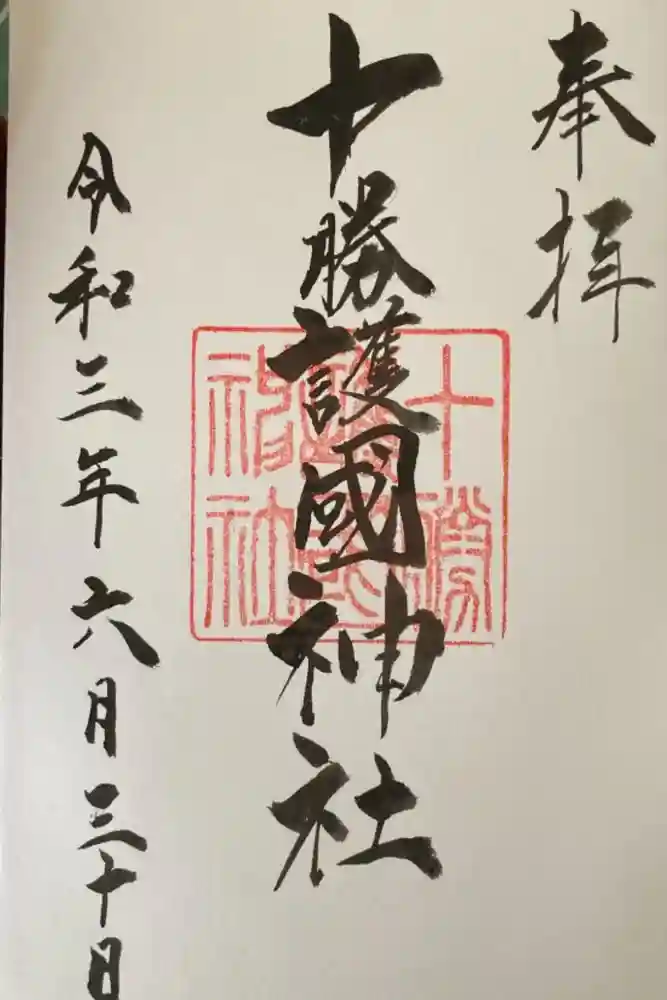 奉拝
十勝護國神社
十勝護國神社
令和三年六月三十日